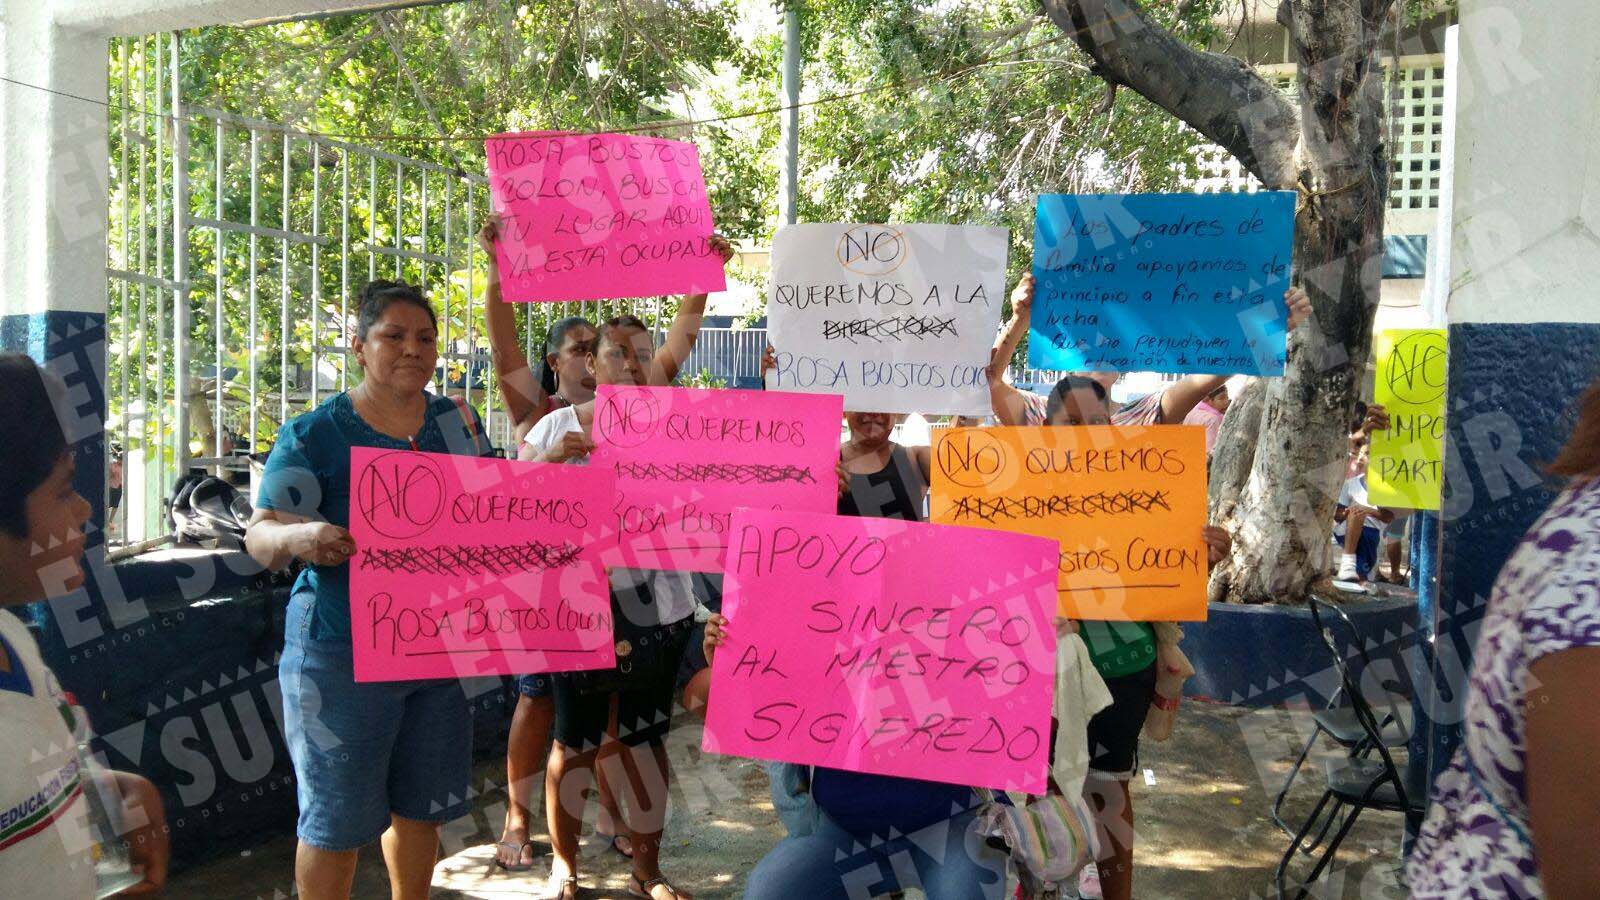 ROSA BUSTOS
COLON, BUSCA
TU LUGAR AQUI
YA ESTA OCUPADO
NO
QUEREMOS A LA
DIRECTORA
ROSA BUSTOS COLO
Los padres de
familia apoyamos de
principio a fin esta
lucha.
Que no perjudiquen la
educación de nuestros hijos
NO
IMPO
PART
NO QUEREMOS
A LA DIRECTORA
ROSA BUST
NO QUEREMOS
A LA DIRECTORA
BUSTOS COLON
NO QUEREMOS
A LA DIRECTORA
ROSA BUSTOS COLON
APOYO
SINCERO
AL MAESTRO
SIGIFREDO
EDUCACIÓN
EL SUR
PERIÓDICO DE GUERRERO